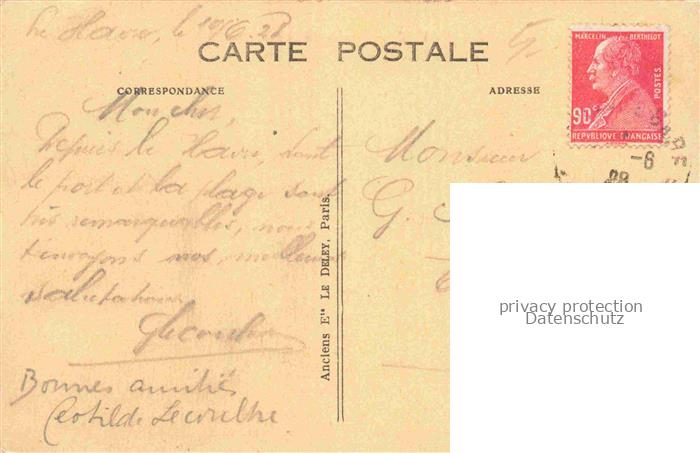 Le Havre, le 10/6.28
CARTE POSTALE
CORRESPONDANCE
ADRESSE
MARCELIN BERTHELOT
POSTES
90c
REPVBLIQUE FRANÇAISE
-6
28
Mon cher,
Depuis le Havre, dont
le port et la plage sont
très remarquables, nous
t'envoyons nos meilleures
salutations
Lecoulhe
Bonnes amitiés
Clotilde Lecoulhe
Anciens Ets LE DELEY, Paris.
Monsieur
G.
privacy protection
Datenschutz